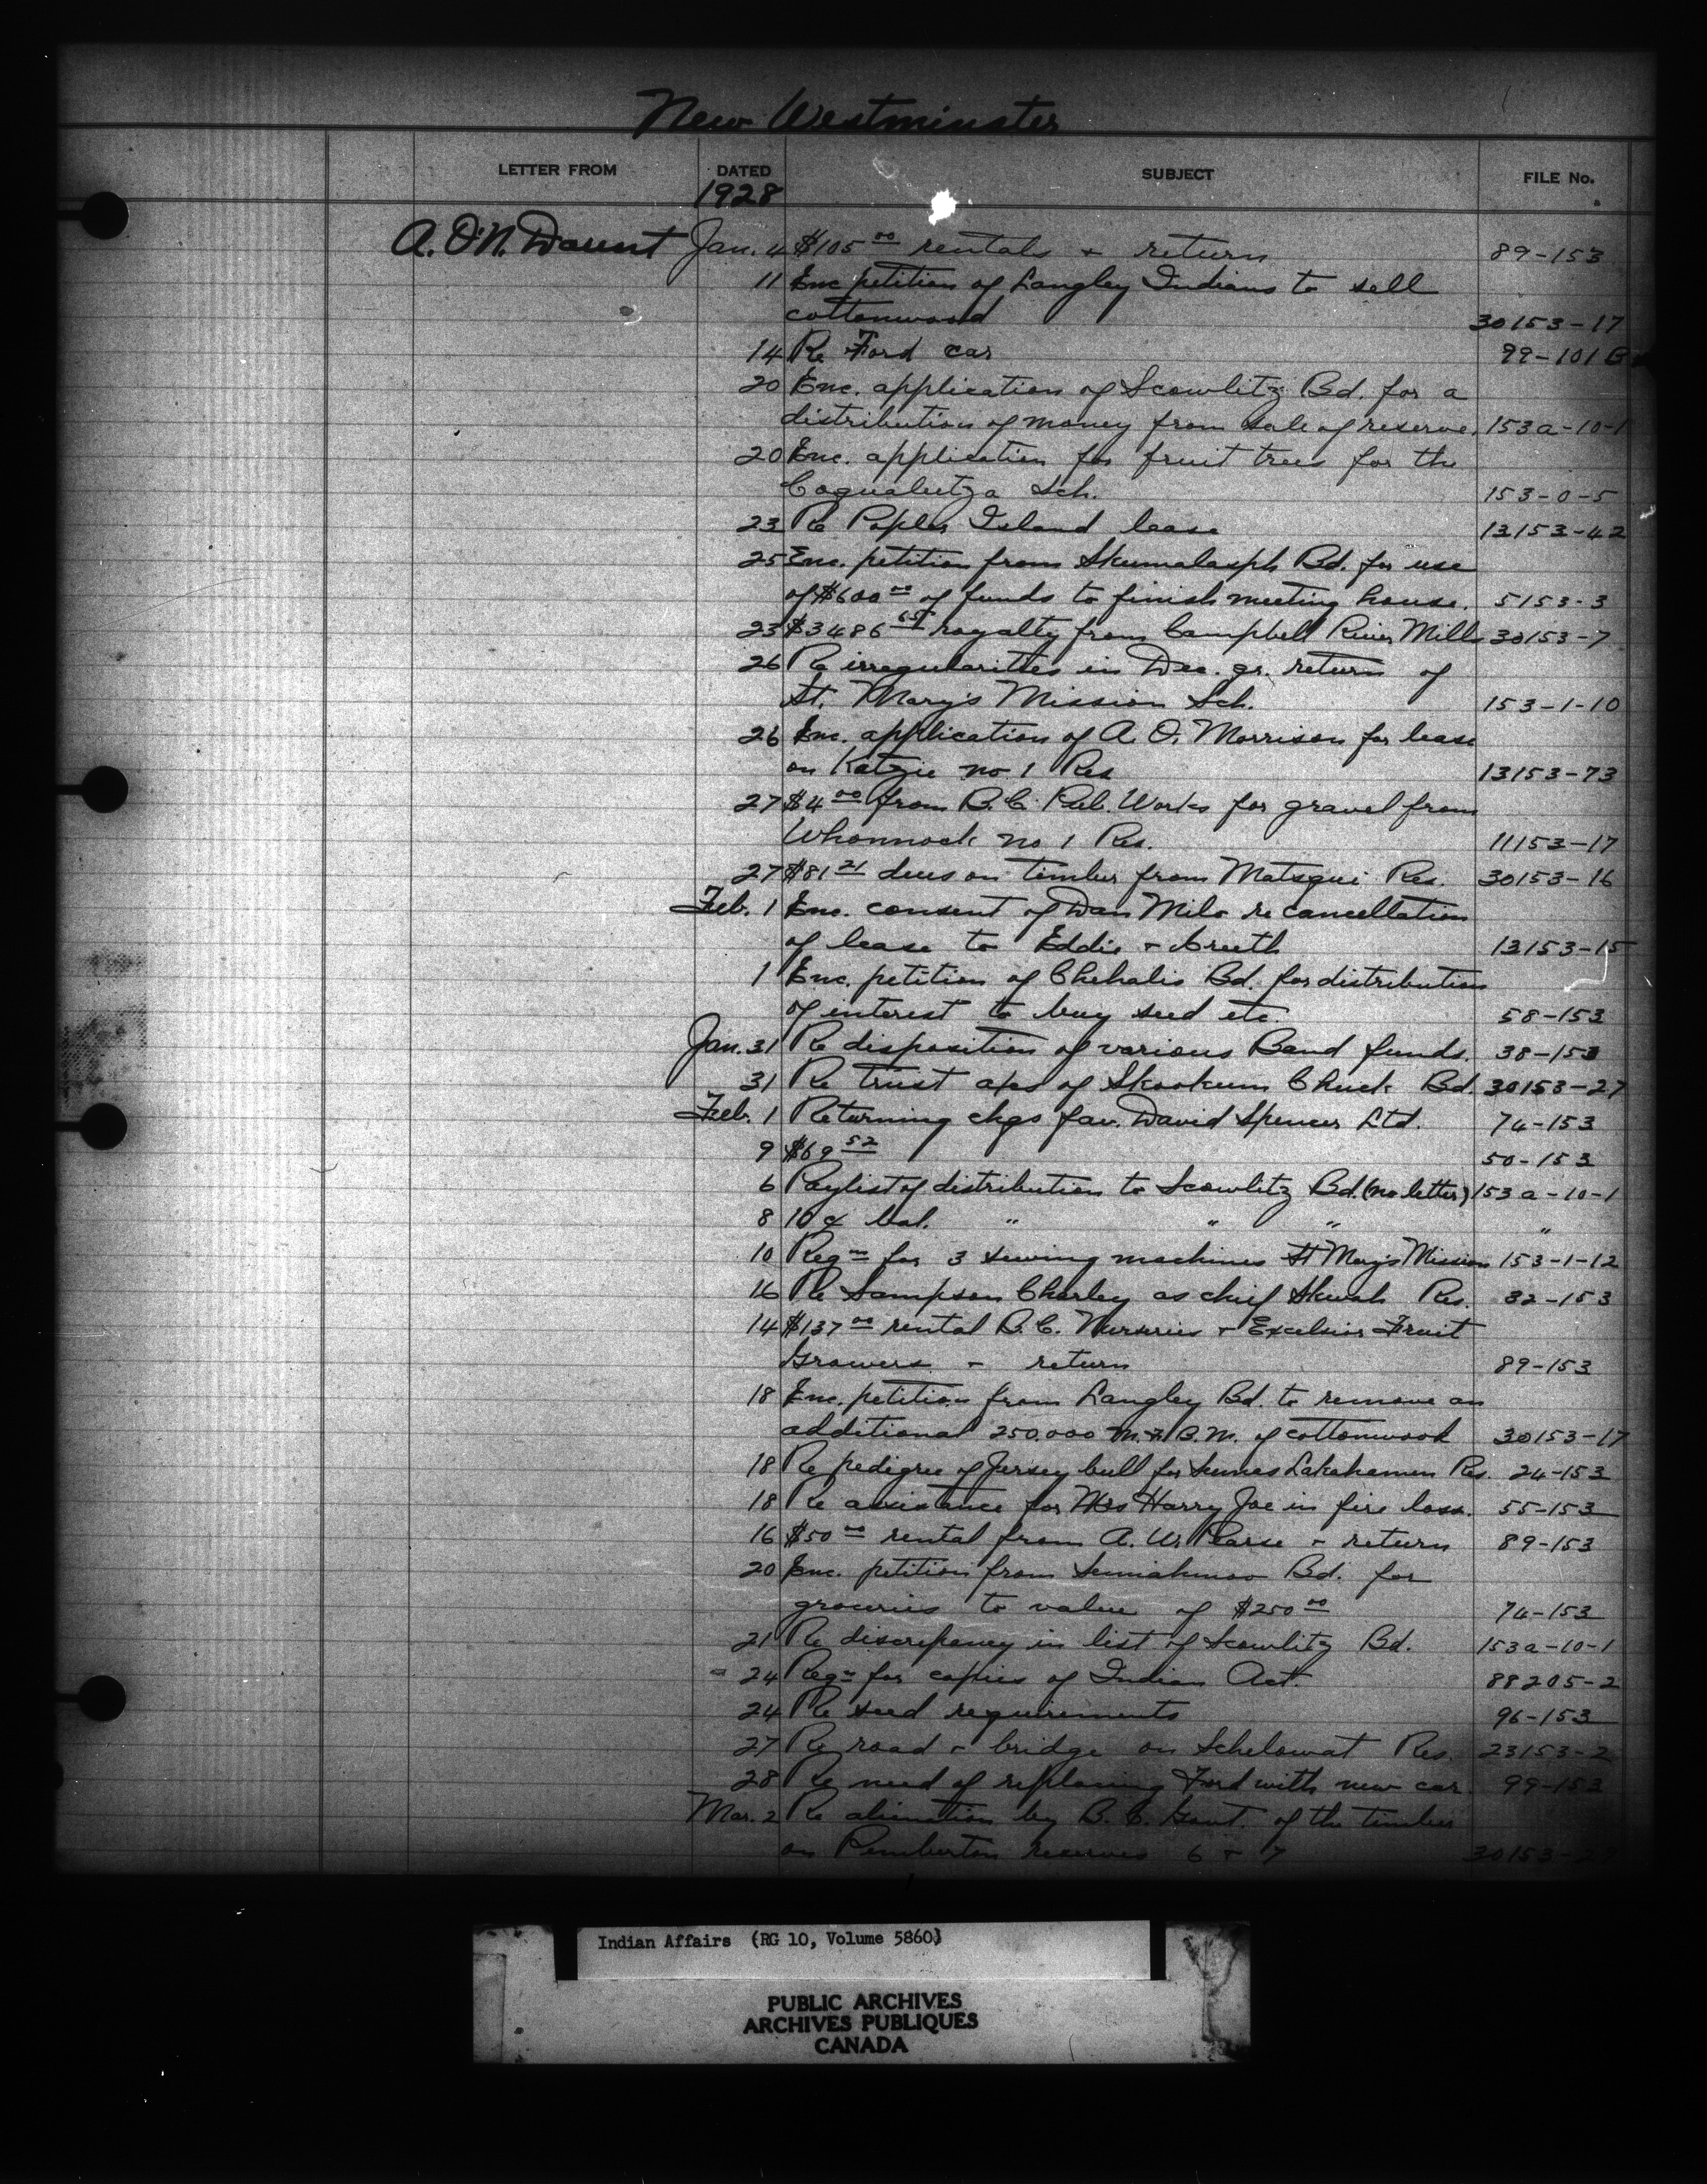 New Westminster
LETTER FROM DATED SUBJECT FILE No.
1928
A. O'N. Daunt Jan. 4 $105.00 rentals + return 89-153
11 Enc petition of Langley Indians to sell
cottonwood 30153-17
14 Re Ford car 99-101
20 Enc. application of Scowlitz Bd. for a
distribution of money from sale of reserve. 153a-10-1
20 Enc. application for fruit trees for the
Coqualeetza Sch. 153-0-5
23 Re Poplar Island lease 13153-42
25 Enc. petition from Skumalasph Bd. for use
of $600.00 of funds to finish meeting house. 5153-3
23 $3486.65 royalty from Campbell River Mills 30153-7
26 Re irregularities in Dec. qr. return of
St. Mary's Mission Sch. 153-1-10
26 Enc. application of A. O. Morrison for lease
on Katzie no 1 Res 13153-73
27 $4.00 from B.C. Pub. Works for gravel from
Whonnock no 1 Res. 11153-17
27 $81.21 dues on timber from Matsqui Res. 30153-16
Feb. 1 Enc. consent of Dan Milo re cancellation
of lease to Eddie + 13153-15
1 Enc. petition of Chehalis Bd. for distribution
of interest to buy seed etc. 58-153
Jan. 31 Re disposition of various Band funds. 38-153
31 Re trust a/cs of Skookum Chuck Bd. 30153-27
Feb. 1 Returning chqs fav. David Spencer Ltd. 74-153
9 $69.52 50-153
6 Paylist of distribution to Scowlitz Bd. (no letter) 153a-10-1
8 10¢ bal. " " " "
10 Reqn for 3 sewing machines St Mary's Mission 153-1-12
16 Re Sampson Charley as chief Skwah Res. 32-153
14 $137.00 rental B.C. Nurseries + Excelsior Fruit
Growers + return 89-153
18 Enc. petition from Langley Bd. to remove an
additional 250.000 B.M. of cottonwood 30153-17
18 Re pedigree of Jersey bull for Sumas Lakahamen Res. 24-153
18 Re assistance for Mrs Harry Joe in fire loss. 55-153
16 $50.00 rental from A. W. Pearse + return 89-153
20 Enc. petition from Semiahmoo Bd. for
groceries to value of $250.00 74-153
21 Re discrepancy in list of Scowlitz Bd. 153a-10-1
24 Reqn for copies of Indian Act. 88205-2
24 Re seed requirements 96-153
27 Re road + bridge on Schelowat Res. 23153-2
28 Re need of replacing Ford with new car. 99-153
Mar. 2 Re alienation by B.C. Govt. of the timber
on Pemberton reserves 6 + 7
Indian Affairs (RG 10, Volume 5860)
PUBLIC ARCHIVES
ARCHIVES PUBLIQUES
CANADA